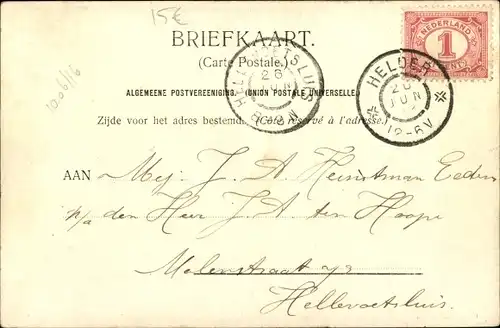 15€
BRIEFKAART.
(Carte Postale.)
ALGEMEENE POSTVEREENIGING. (UNION POSTALE UNIVERSELLE)
Zijde voor het adres bestemd. (Côté réservé à l'adresse.)
NEDERLAND
1
CENT
HELLEVOETSLUIS
26
JUN
HELDER
26
JUN
12-6V
AAN Mej. J. A.
p/a den Heer J. A. ten Hoope
Molenstraat
Hellevoetsluis.